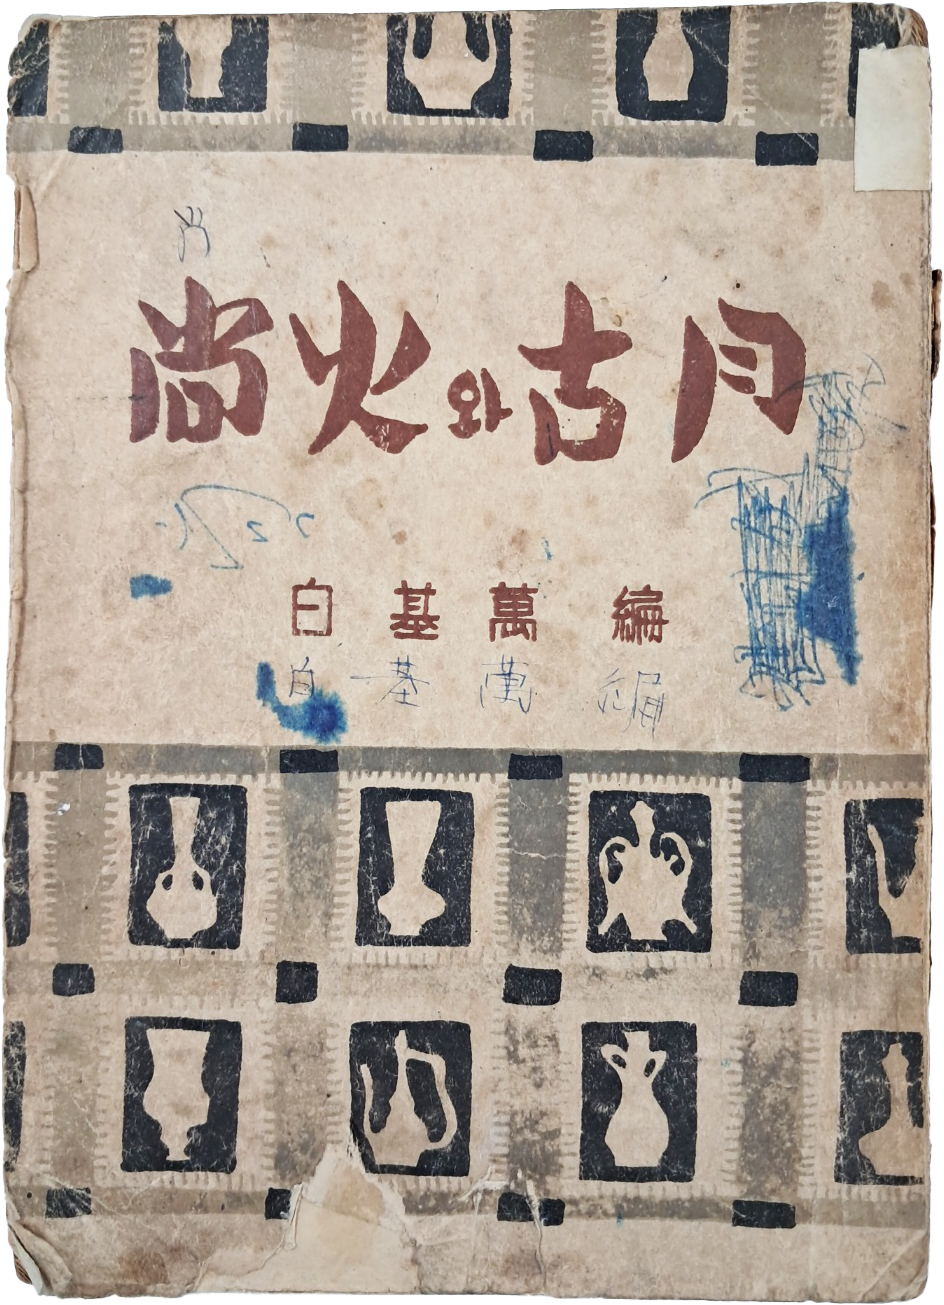 尙火와古月
白基萬編
白基萬編